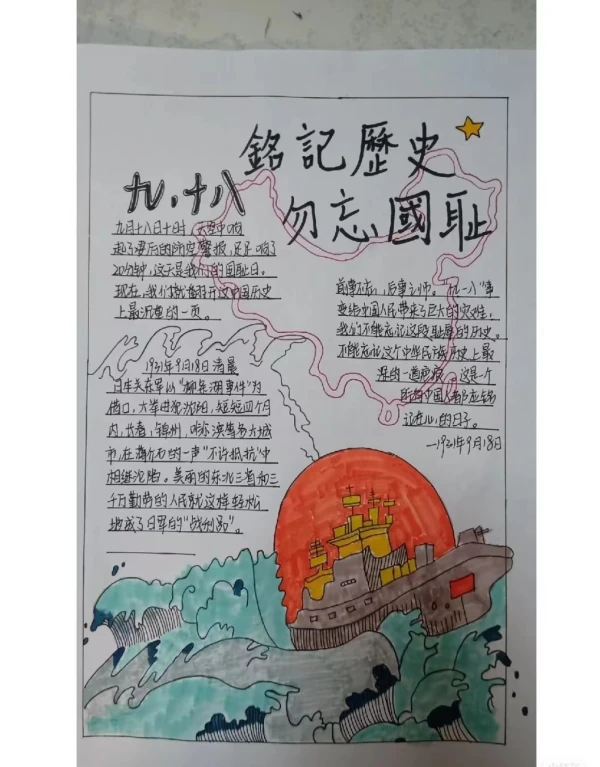 銘記歷史
勿忘國耻
九·十八
九月十八日十时，天空中响
起了凄厉的防空警报，足足响了
20分钟，这天是我们的国耻日。
现在，我们就准备翻开这中国历史
上最沉重的一页。
1931年9月18日清晨
日军关东军以“柳条湖事件”为
借口，大举进犯沈阳，短短四个月
内，长春，锦州，哈尔滨等多大城
市，在蒋介石的一声“不许抵抗”中
相继沦陷。美丽的东北三省和三
千万勤劳的人民就这样轻松
地成了日军的“战利品”。
前事不忘，后事之师。“九一八”事
变给中国人民带来了巨大的灾难，
我们不能忘记这段耻辱的历史。
不能忘记这个中华民族历史上最
深的一道疤痕，这是一个
所有中国人都应铭
记进心的日子。
—1931年9月18日